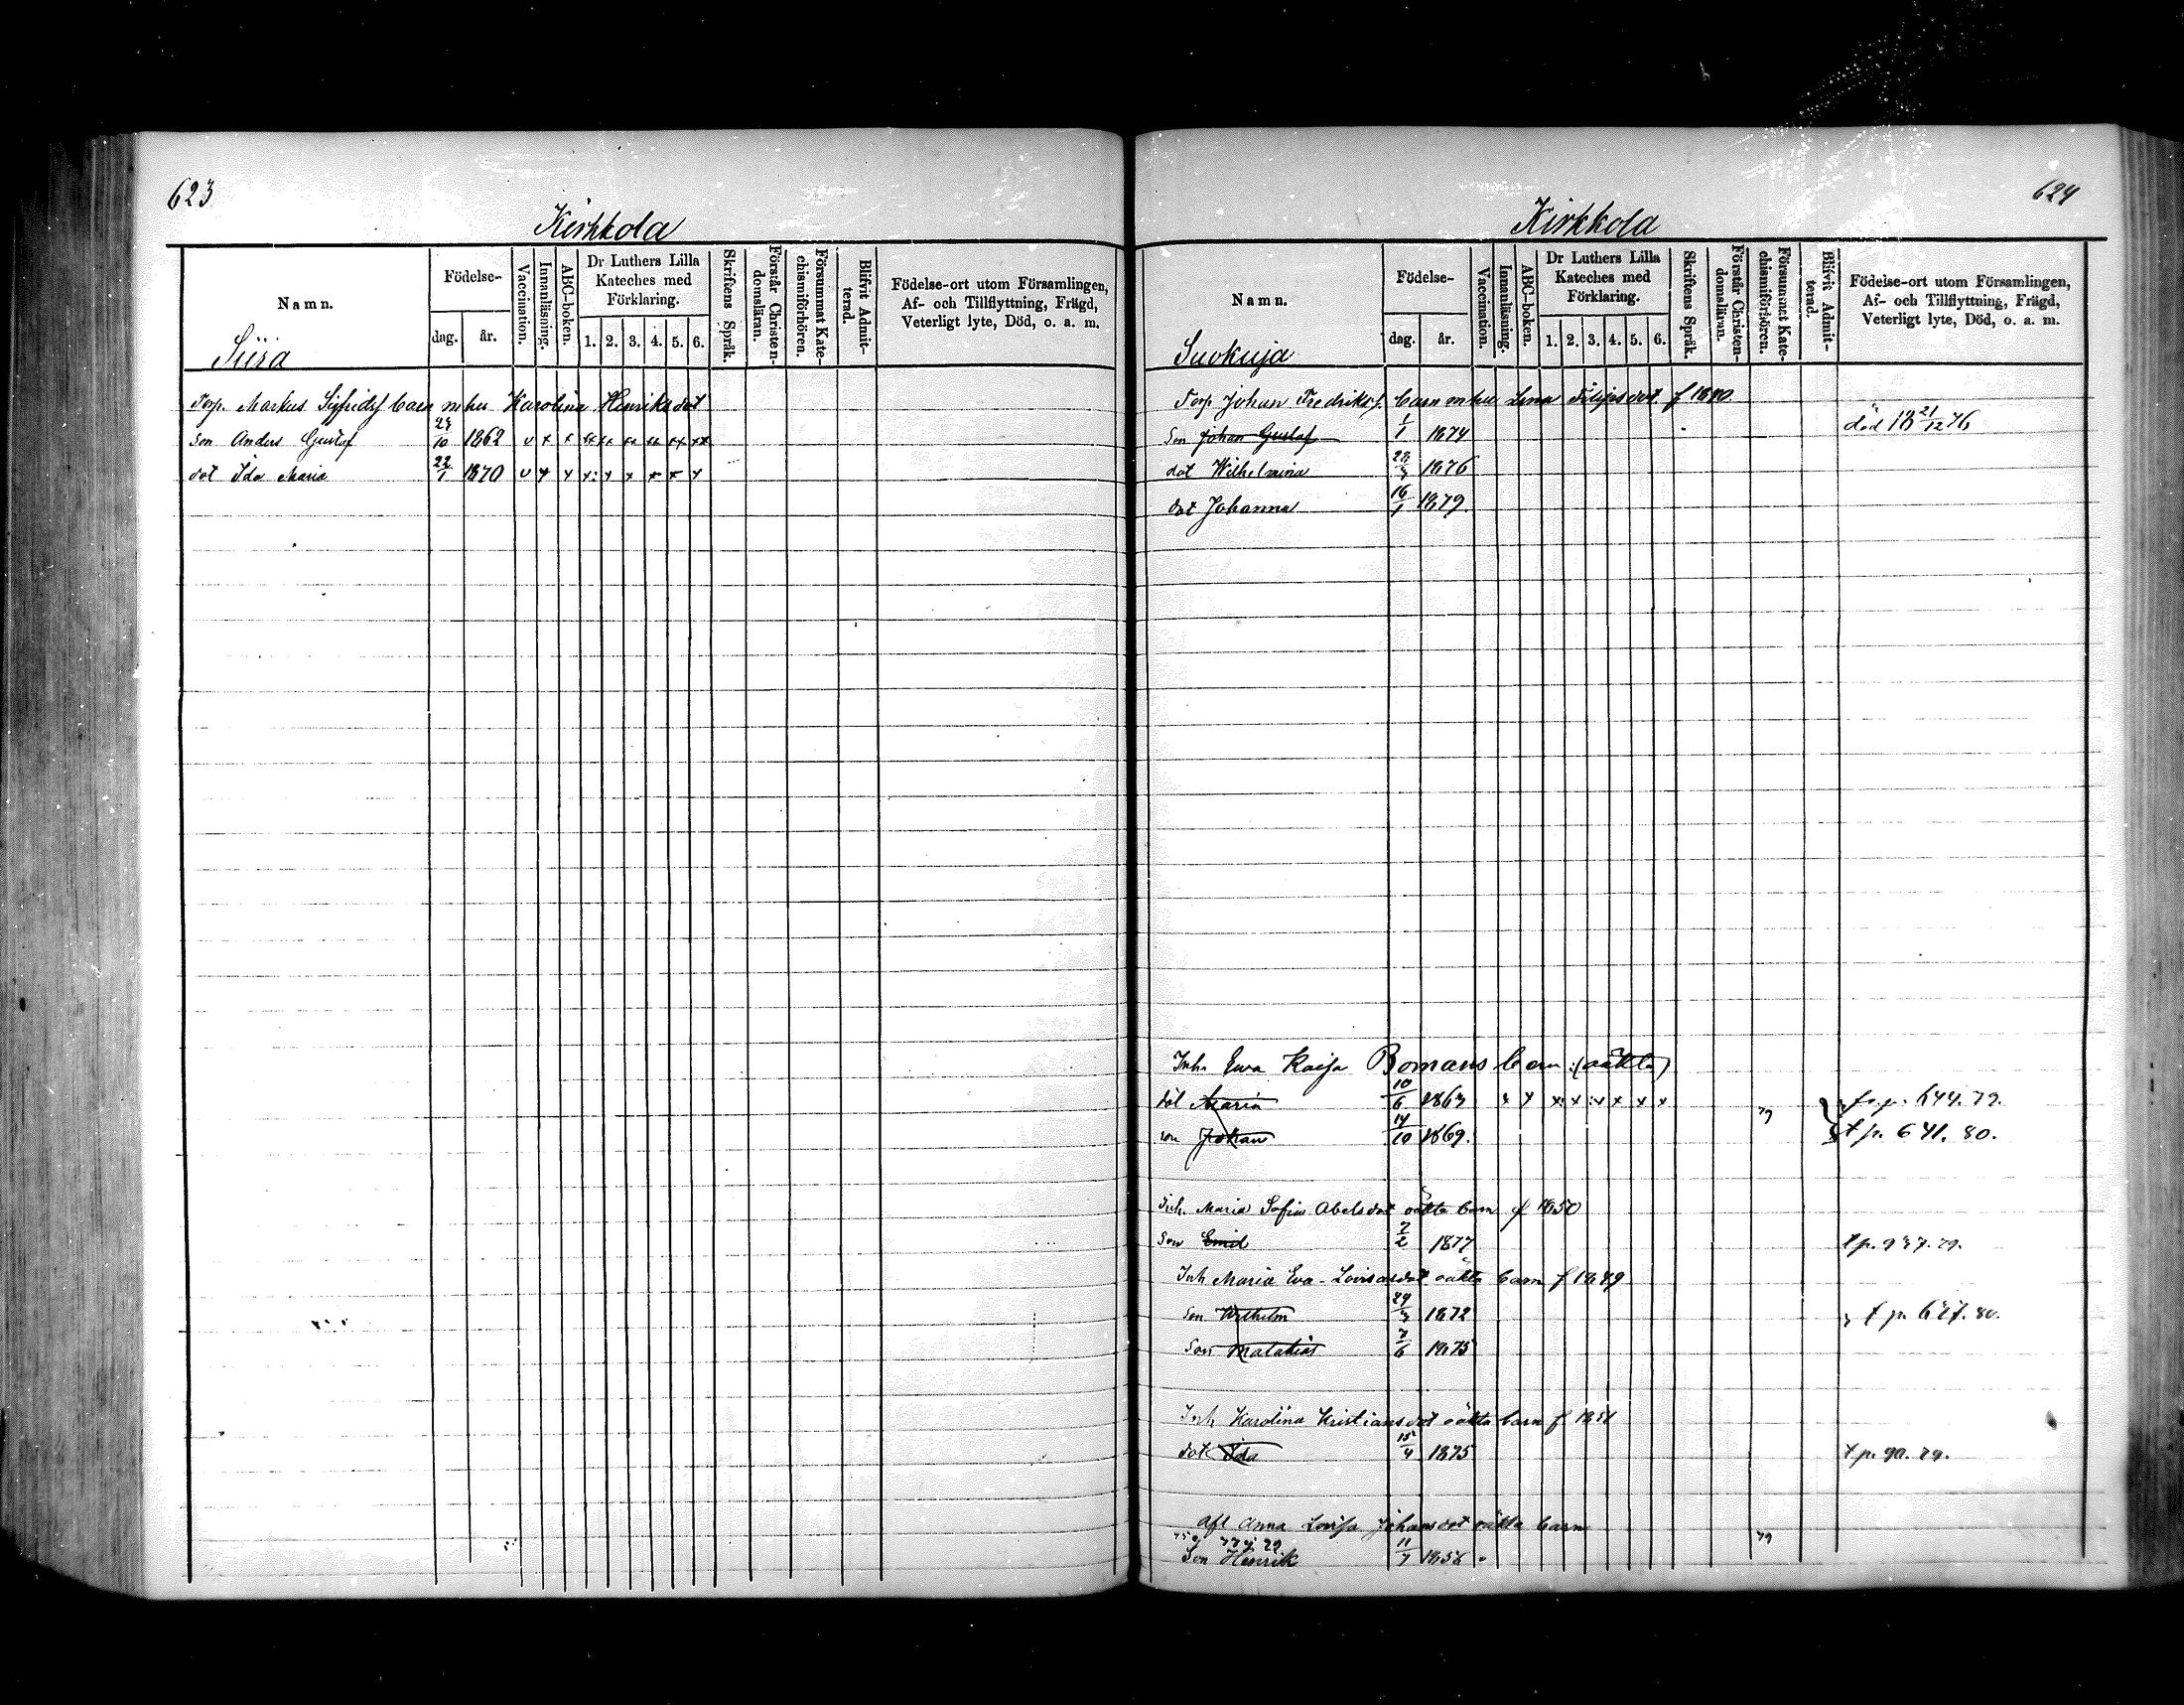 623
Kirkkola
Namn.
Födelse-
dag.
år.
Vaccination.
Innanläsning.
ABC-boken.
Dr Luthers Lilla
Kateches med
Förklaring.
1. 2. 3. 4. 5. 6.
Skriftens Språk.
Förstår Christen-
domsläran.
Försummat Kate-
chismiförhören.
Blifvit Admit-
terad.
Födelse-ort utom Församlingen,
Af- och Tillflyttning, Frägd,
Veterligt lyte, Död, o. a. m.
Siira
Torp. Markus Sigfridsf barn m hu Karolina Henriksdot
Son Anders Gustaf 10 1862 v x x xx xx xx xx xx xx
dot Ida Maria 22/1 1870 v x x x: x x x x x
624
Kirkkola
Namn.
Födelse-
dag.
år.
Vaccination.
Innanläsning.
ABC-boken.
Dr Luthers Lilla
Kateches med
Förklaring.
1. 2. 3. 4. 5. 6.
Skriftens Språk.
Förstår Christen-
domsläran.
Försummat Kate-
chismiförhören.
Blifvit Admit-
terad.
Födelse-ort utom Församlingen,
Af- och Tillflyttning, Frägd,
Veterligt lyte, Död, o. a. m.
Suokuja
Torp Johan Fredriksf. barn m hu Lena Filipsdot f
Son Johan Gustaf 1/1 1874 död 18 21/12 76
dot Wilhelmina 1876
dot Johanna 16/1 1879.
Inh. Ewa Kaisa Bomans barn (oäkta)
dot Maria 10/6 x x x: x :x x x x 79 644. 79.
son Johan 14/10 1869. t p. 641. 80.
Inh. Maria Sofia Abelsdot oäkta barn f 1850
Son Emil 2/2 1877 t p.
Inh Maria Eva-Lovisasdot oäkta barn f 1849
Son Wilhelm 29/3 1872 t p. 80.
Son Matatias 7/6 1875
Inh Karolina Kristiansdot oäkta barn f
dot Ida 15/4 1875 t p. 90. 79.
afl Anna Lovisa Johansdot oäkta barn
Son Henrik 11/7 79